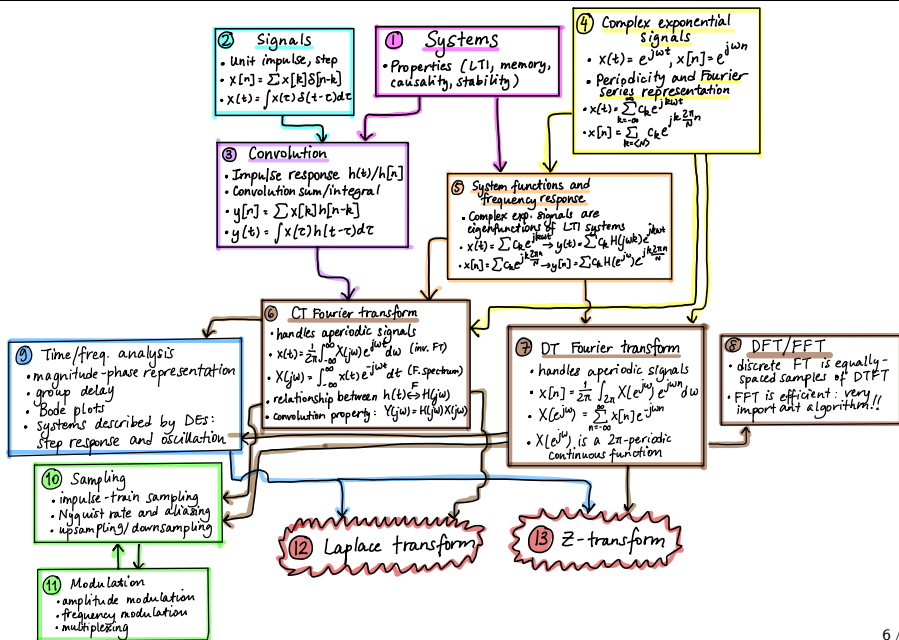 ② Signals
• Unit impulse, step
• x[n] = ∑x[k]δ[n-k]
• x(t) = ∫x(τ)δ(t-τ)dτ
① Systems
• Properties (LTI, memory,
causality, stability)
④ Complex exponential
signals
• x(t) = e^{jωt}, x[n] = e^{jωn}
• Periodicity and Fourier
Series representation
• x(t) = ∑_{k=-∞}^{∞} c_k e^{jkωt}
• x[n] = ∑_{k=<N>} c_k e^{jk 2π/N n}
③ Convolution
• Impulse response h(t)/h[n]
• Convolution sum/integral
• y[n] = ∑x[k]h[n-k]
• y(t) = ∫x(τ)h(t-τ)dτ
⑤ System functions and
frequency response
• Complex exp. signals are
eigenfunctions of LTI systems
• x(t) = ∑c_k e^{jkωt} → y(t) = ∑c_k H(jωk)e^{jkωt}
• x[n] = ∑c_k e^{jk 2πn/N} → y[n] = ∑c_k H(e^{jω})e^{jk 2πn/N}
⑥ CT Fourier transform
• handles aperiodic signals
• x(t) = 1/2π ∫_{-∞}^{∞} X(jω)e^{jωt} dω (inv. FT)
• X(jω) = ∫_{-∞}^{∞} x(t)e^{-jωt} dt (F. spectrum)
• relationship between h(t) F↔ H(jω)
• convolution property: Y(jω) = H(jω)X(jω)
⑦ DT Fourier transform
• handles aperiodic signals
• x[n] = 1/2π ∫_{2π} X(e^{jω}) e^{jωn} dω
• X(e^{jω}) = ∑_{n=-∞}^{∞} x[n]e^{-jωn}
• X(e^{jω}) is a 2π-periodic
continuous function
⑧ DFT/FFT
• discrete FT is equally-
spaced samples of DTFT
• FFT is efficient: very
important algorithm!!
⑨ Time/freq. analysis
• magnitude-phase representation
• group delay
• Bode plots
• Systems described by DEs:
step response and oscillation
⑩ Sampling
• impulse-train sampling
• Nyquist rate and aliasing
• upsampling/downsampling
⑪ Modulation
• amplitude modulation
• frequency modulation
• multiplexing
⑫ Laplace transform
⑬ Z-transform
6 /